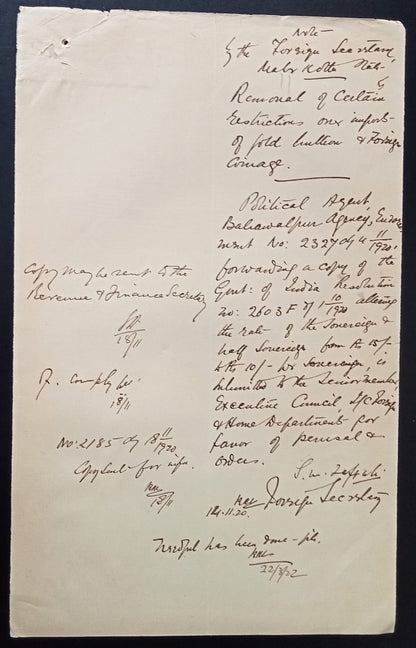 Note
by the Foreign Secretary
Maler Kotla State
Removal of Certain
restrictions over imports
of gold bullion & Foreign
Coinage.
Political Agent,
Bahawalpur Agency, Endorse-
ment No: 2327 of 4/11/1920,
forwarding a copy of the
Govt: of India Resolution
no: 2603 F of 1/10/1920 altering
the rate of the Sovereign &
half Sovereign from Rs 15/-
to Rs 10/- per Sovereign, is
submitted to the Senior member
Executive Council, I/C Foreign
& Home Departments for
favor of perusal &
orders.
Foreign Secretary
14.11.20.
Copy may be sent to the
Revenue & Finance Secretary
18/11
F. comply pl.
18/11
No: 2185 of 18/11/1920
Copy sent for infn.
18/11
Needful has been done - file.
22/3/22